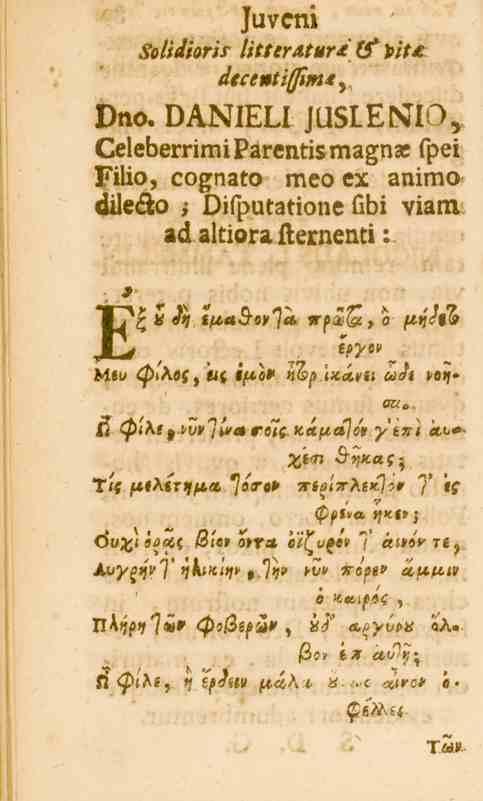 Juveni
Solidioris litteraturæ & vitæ
decentissimæ,
Dno. DANIELI JUSLENIO,
Celeberrimi Parentis magnæ spei
Filio, cognato meo ex animo
dilecto ; Disputatione sibi viam
ad altiora sternenti :
Ἐξ ὗ δὴ ἔμαθον τὰ πρῶτα, ὃ μήδετο
ἔργον
Μευ Φίλος, εἰς ἐμὸν ἦτορ ἱκάνει ὧδε νοῆ-
σαι.
Ὦ Φίλε, νῦν τίνα τοῖς κάματόν γ' ἐπὶ αυ-
χέσι θῆκας;
Τίς μελέτημα τόσον περίπλεκτον τ' ἐς
Φρένα ἧκεν;
Ουχὶ ὁρᾷς βίον ὄντα ὀϊζυρόν τ' αινόν τε,
Λυγρήν τ' ἡλικίην, τὴν νῦν πόρεν ἄμμιν
ὁ καιρός,
Πλήρη τῶν Φοβερῶν, ὐδ' αργύρυ ὄλ-
βον ἐπ' αυτῇ;
Ὦ Φίλε, ἢ ἔρδειν μάλα αἶνον ὀ-
Φέλλες.
Τῶν